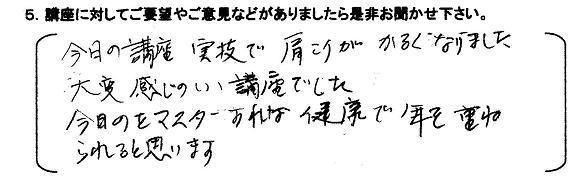 5. 講座に対してご要望やご意見などがありましたら是非お聞かせ下さい。
今日の講座 実技で 肩こりが かるくなりました
大変 感じのいい 講座でした
今日のをマスターすれば 健康で 年を 重ね
られると思います